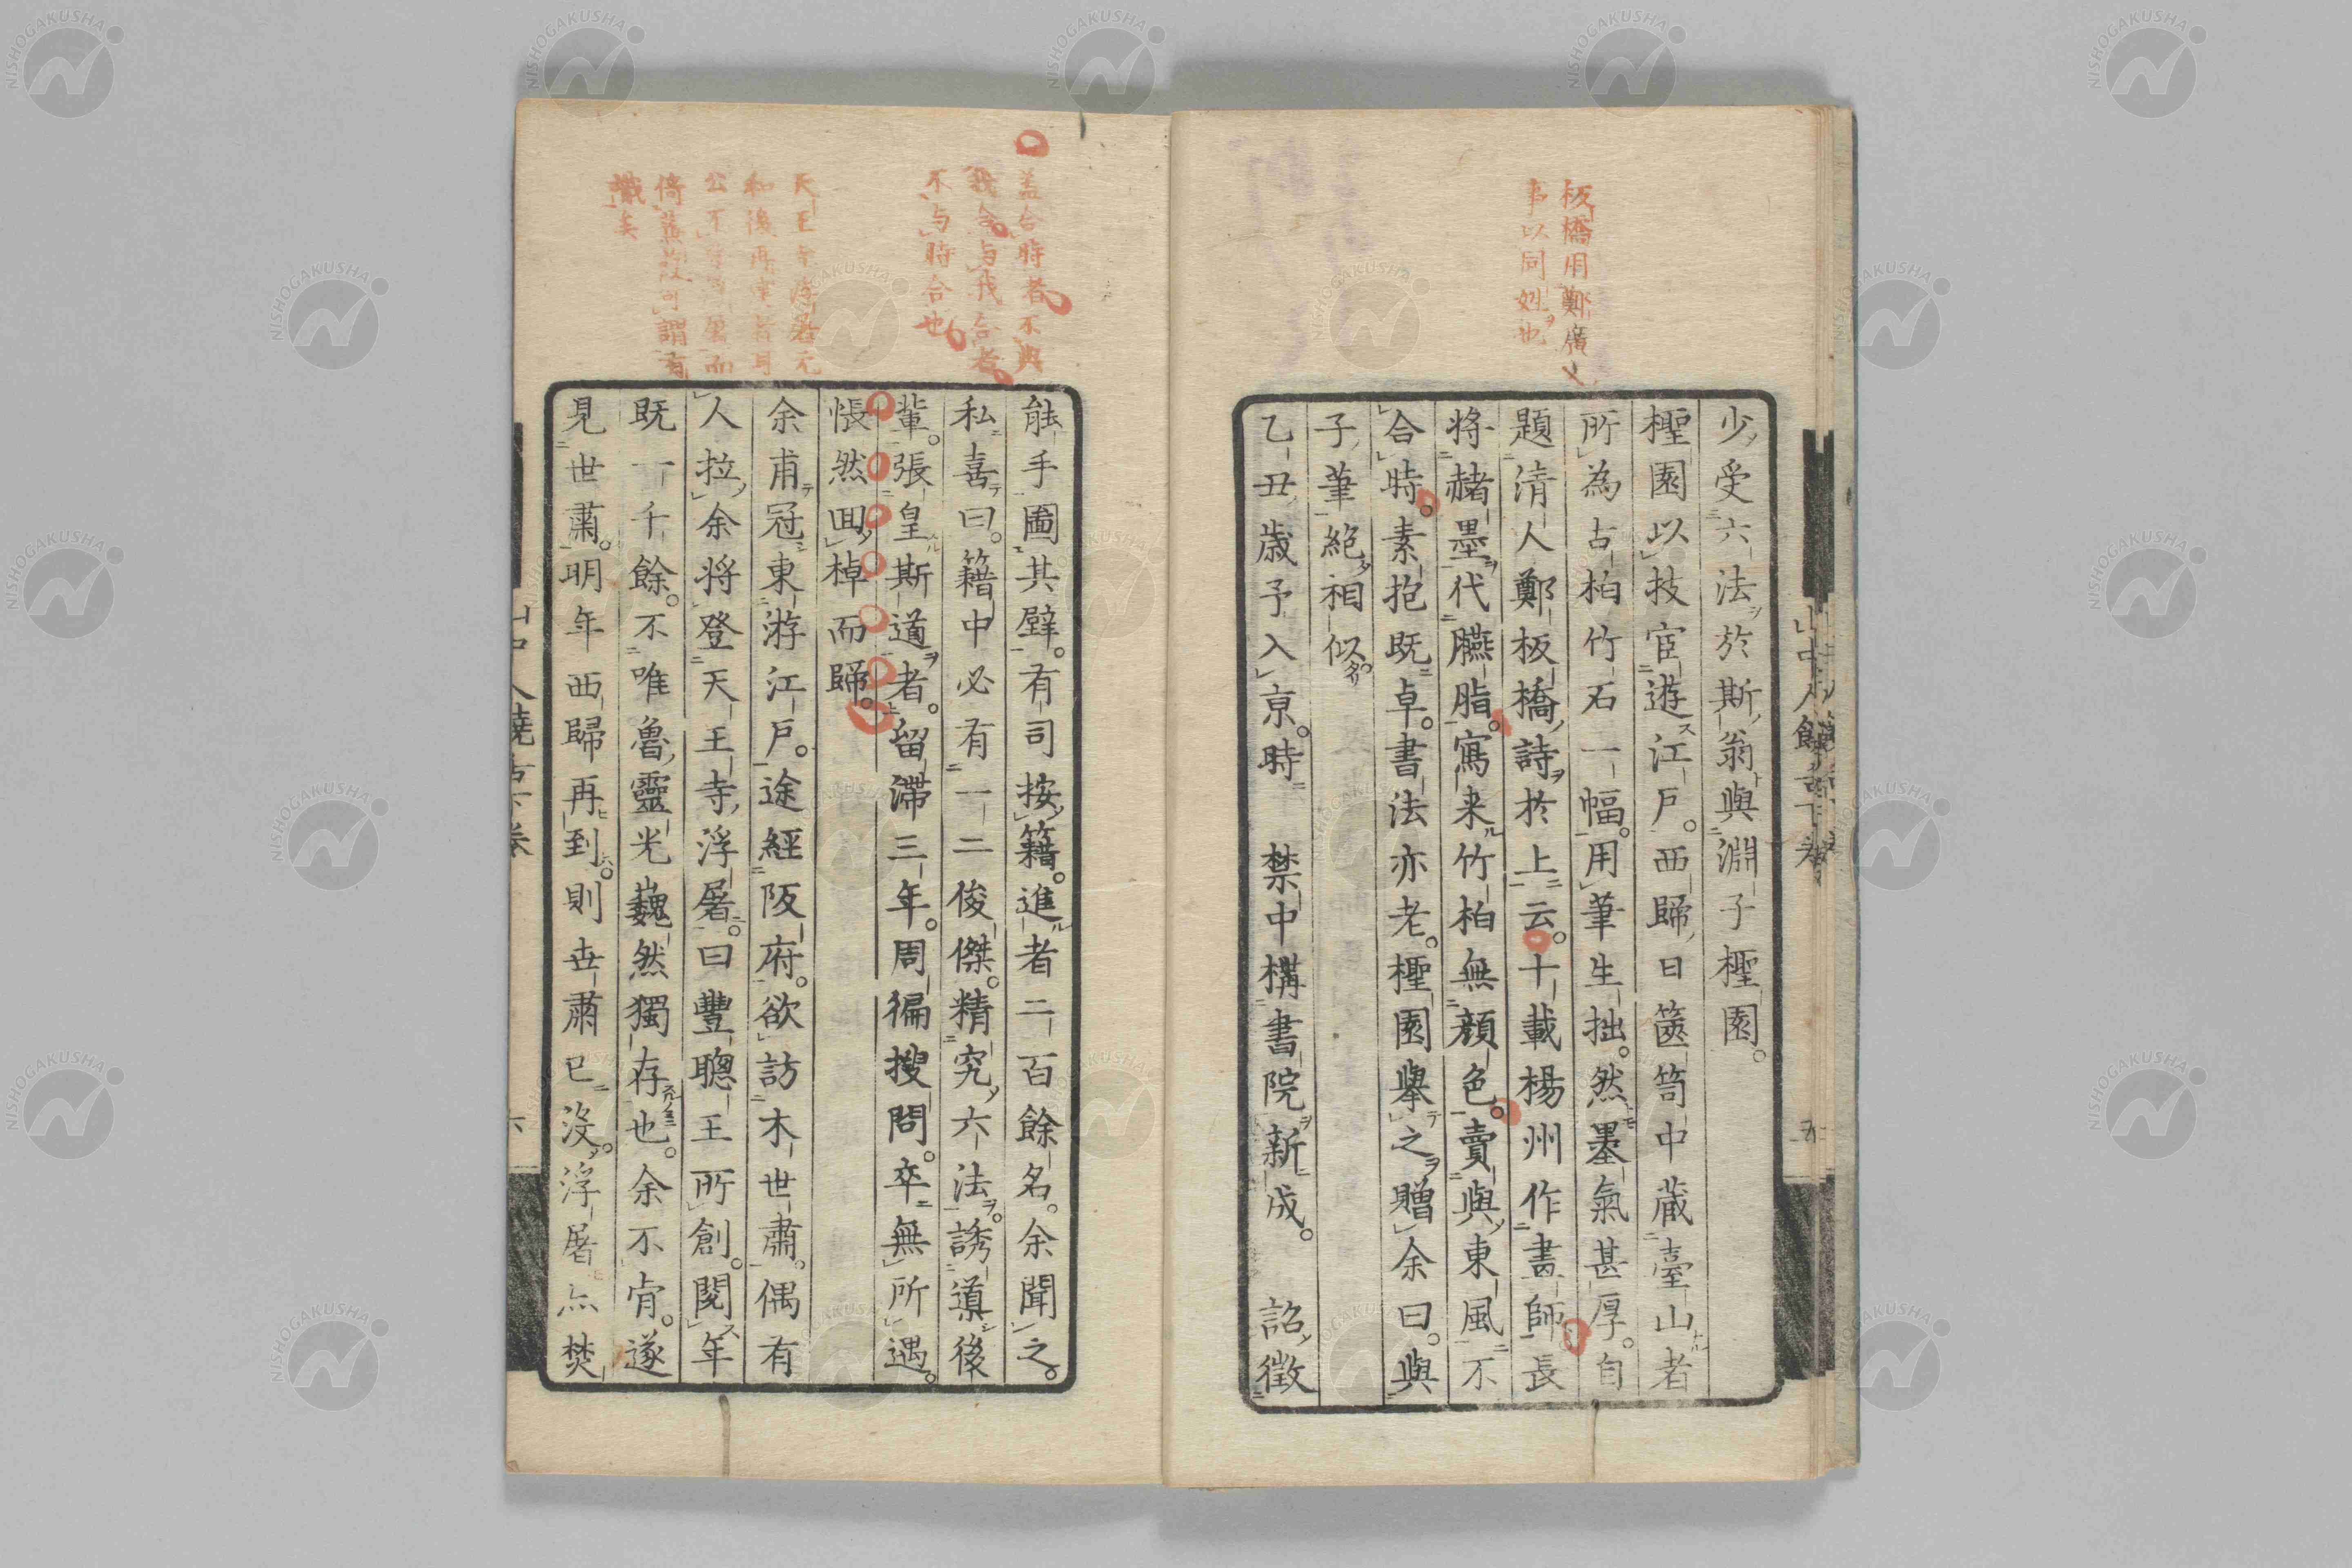 板橋用鄭廣文
事以同姓也
少受六法於斯翁與淵子檉園
檉園以技宦遊江戸。西歸日篋笥中蔵臺山者
所為古柏竹石一幅。用筆生拙。然墨氣甚厚。自
題清人鄭板橋詩於上云。十載楊州作畫師長
将赭墨代臙脂。寫来竹柏無顔色。賣與東風不
合時。素抱既卓。書法亦老。檉園擧之贈余曰。與
子筆絶相似。
乙丑歳予入亰。時 禁中構書院新成。 詔徴
能手圖其壁。有司按籍。進者二百餘名。余聞之。
私喜曰。籍中必有一二俊傑。精究六法。誘道後
輩。張皇斯道者。留滞三年。周徧搜問。卒無所遇。
悵然囬棹而歸。
余甫冠東游江戸。途經阪府。欲訪木世肅。偶有
人拉余将登天王寺浮屠。曰豐聰王所創。閲年
既一千餘。不唯魯靈光巍然獨存也。余不肯。遂
見世肅。明年西歸再到。則世肅已没。浮屠亦焚
蓋合時者不與
我合与我合者
不与時合也
天王寺浮屠元
和後再
公不 屠而
倚 故可謂有
識矣
山中人饒舌下卷
五
六
NISHOGAKUSHA